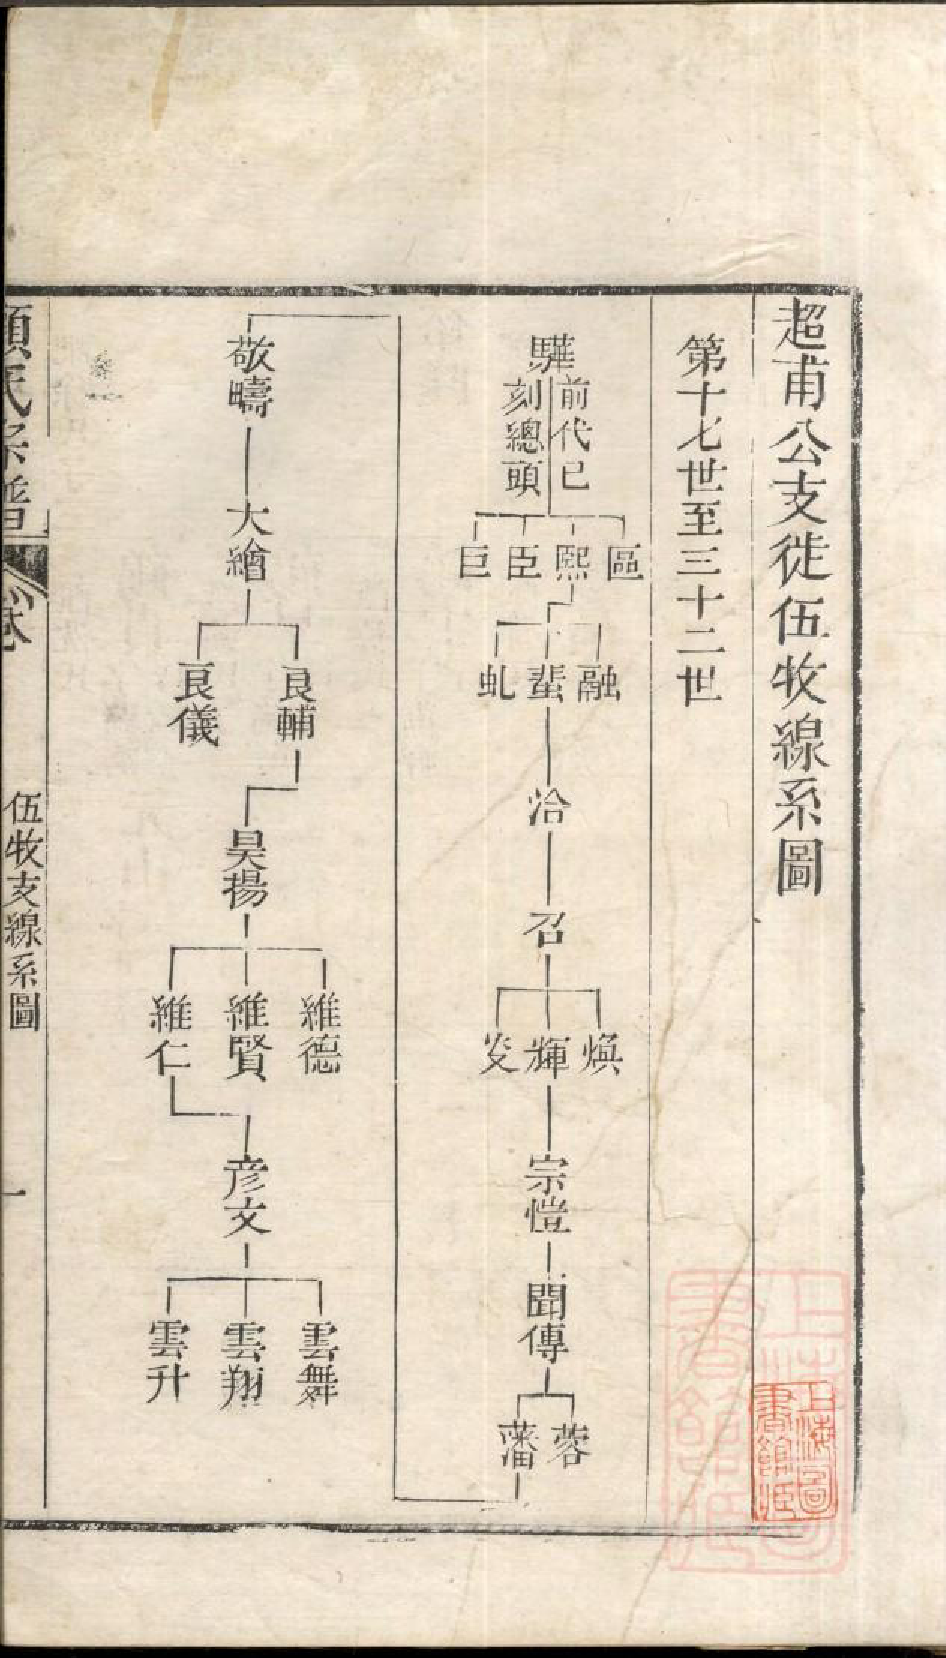 超甫公支徙伍牧線系圖
第十七世至三十二世
驊
前代已
刻總頭
區
熙
臣
巨
融
蜚
虬
洽
召
煥
輝
炎
宗愷
聞傳
蓉
藩
敬疇
大繪
良輔
良儀
昊揚
維德
維賢
維仁
彦文
雲舞
雲翔
雲升
顧氏宗譜
卷
伍牧支線系圖
一
上海圖
書館藏